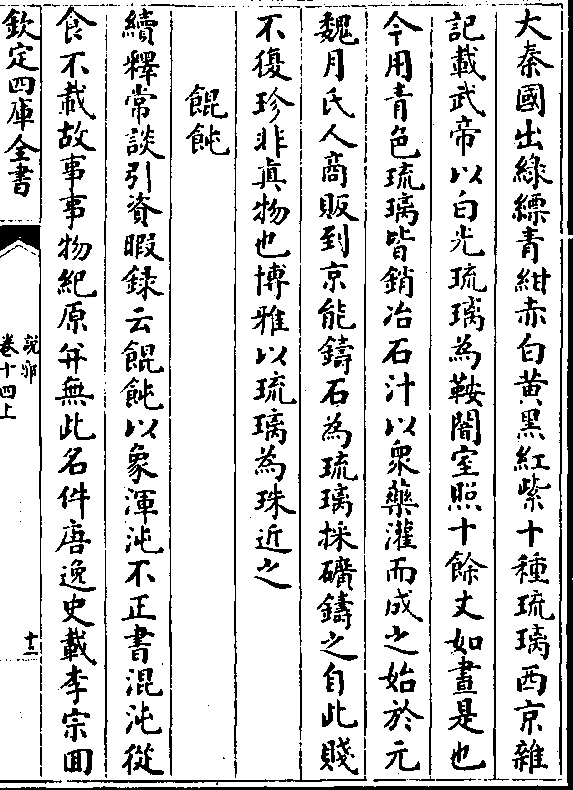 大秦國出綠縹青紺赤白黃黑紅紫十種琉璃西京雜
記載武帝以白光琉璃為鞍闇室照十餘丈如晝是也
今用青色琉璃皆銷冶石汁以眾藥灌而成之始於元
魏月氏人商販到京能鑄石為琉璃採礦鑄之自此賤
不復珍非真物也博雅以琉璃為珠近之
餛飩
續釋常談引資暇錄云餛飩以象渾沌不正書混沌從
食不載故事事物紀原并無此名件唐逸史載李宗回
欽定四庫全書
說郛
卷十四上
十二